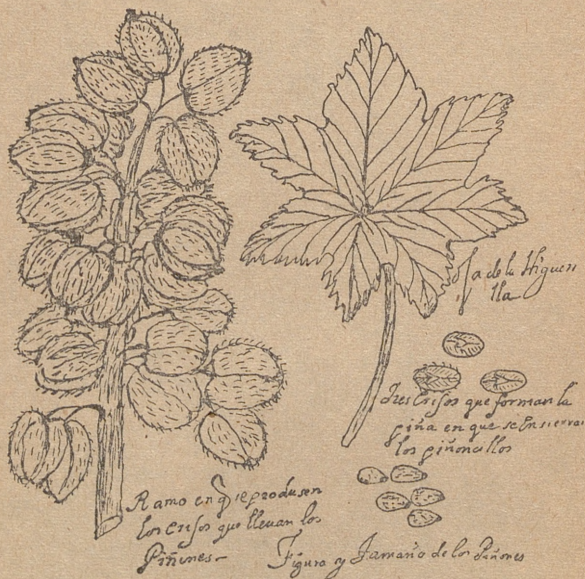 oja de la Higueri
lla
Tres Erisos que forman la
piña en que se Ensierran
los piñonsillos
Ramo en Q̃ se produsen
los Erisos que lleuan los
Piñones
Figura y Tamaño de los Piñones